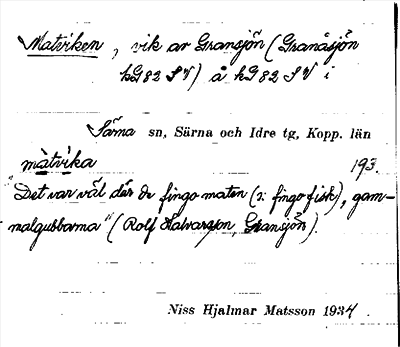 Matviken, vik av Gransjön (Granåsjön
hG82 SV) å hG82 SV i
Särna sn, Särna och Idre tg, Kopp. län
màtvi̇ka 193.
"Det var väl där de fingo maten (ɔ: fingo fisk), gam-
malgubbarna" (Rolf Halvarsson, Gransjön).
Niss Hjalmar Matsson 1934